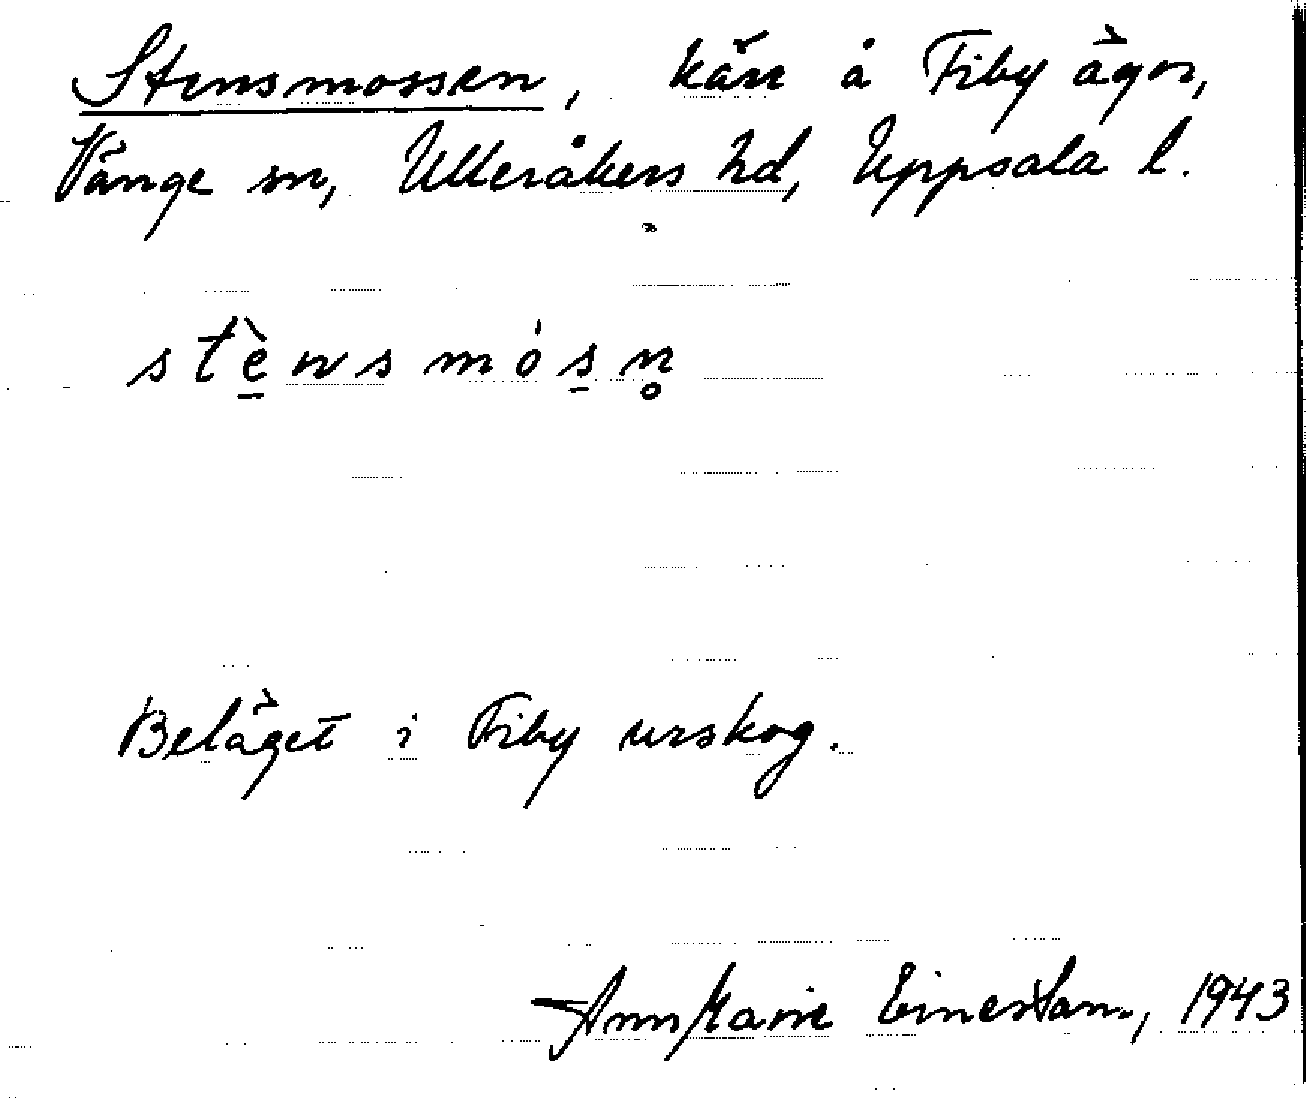 Stensmossen, kärr å Fiby ägor,
Vänge sn, Ulleråkers hd, Uppsala l.
stè̠nsmós̠n̥
Beläget i Fiby urskog.
AnnMarie 1943